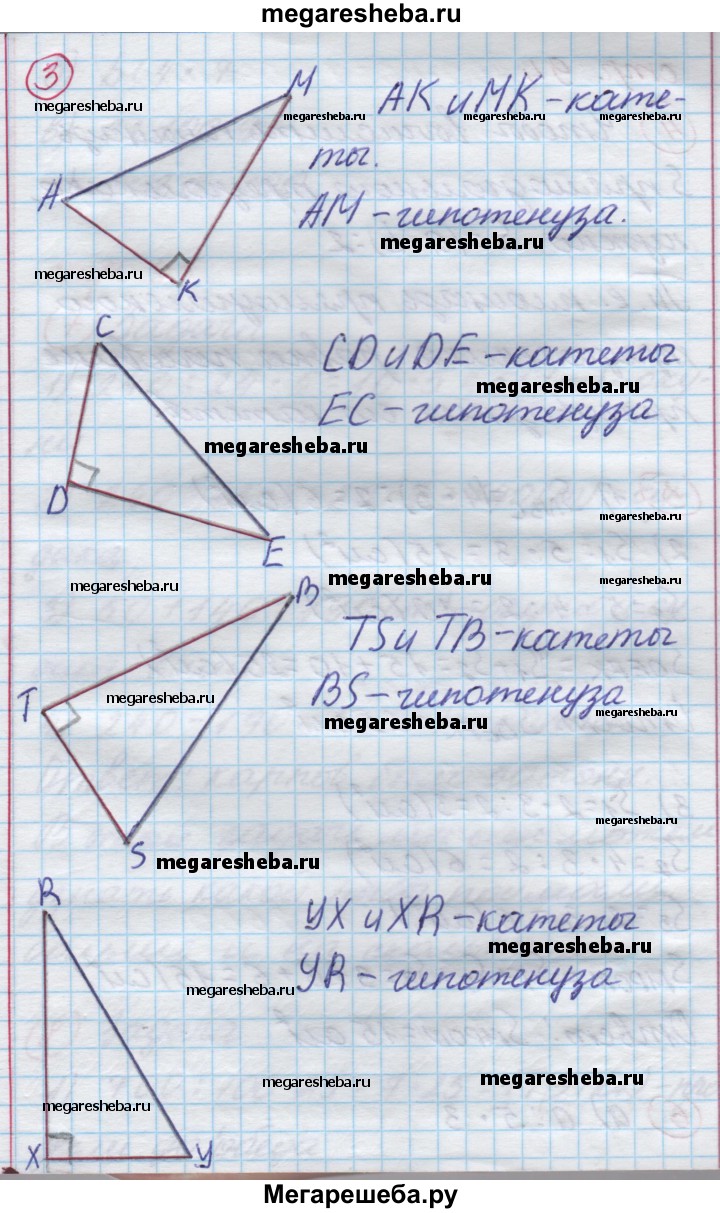 megaresheba.ru
3
M
megaresheba.ru
AK и MK – кате-
megaresheba.ru megaresheba.ru megaresheba.ru
ты.
A
AM – гипотенуза.
megaresheba.ru
megaresheba.ru
K
C
CD и DE – катеты
megaresheba.ru
EC – гипотенуза
megaresheba.ru
D
megaresheba.ru
E
megaresheba.ru
megaresheba.ru
megaresheba.ru
B
TS и TB – катеты
T
megaresheba.ru
BS – гипотенуза
megaresheba.ru
megaresheba.ru
megaresheba.ru
S
megaresheba.ru
R
YX и XR – катеты
megaresheba.ru
YR – гипотенуза
megaresheba.ru
megaresheba.ru
megaresheba.ru
megaresheba.ru
X
Y
Мегарешеба.ру